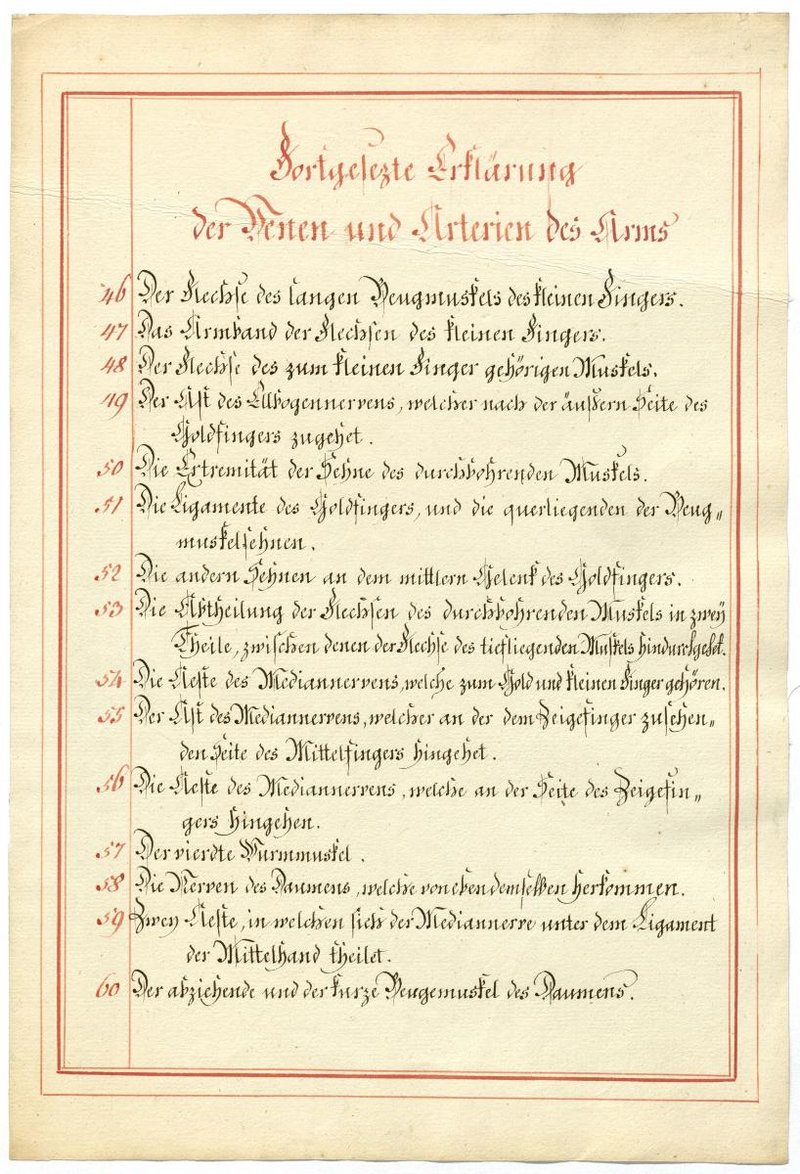 Fortgesezte Erklärung
der Venen und Arterien des Arms
46 Der Flechse des langen Beugmuskels des kleinen Fingers.
47 Das Armband der Flechsen des kleinen Fingers.
48 Der Flechse des zum kleinen Finger gehörigen Muskels.
49 Der Ast des Elbogennervens, welcher nach der äußern Seite des
Goldfingers zugehet.
50 Die Extremität der Sehne des durchbohrenden Muskels.
51 Die Ligamente des Goldfingers, und die querliegenden der Beug„
muskelsehnen.
52 Die andern Sehnen an dem mittlern Gelenk des Goldfingers.
53 Die Abtheilung der Flechsen des durchbohrenden Muskels in zwey
Theile, zwischen denen der Flechse des tiefliegenden Muskels hindurchgehet.
54 Die Aeste des Mediannervens, welche zum Gold und kleinen Finger gehören.
55 Der Ast des Mediannervens, welcher an der dem Zeigefinger zusehen„
den Seite des Mittelfingers hingehet.
56 Die Aeste des Mediannervens, welche an der Seite des Zeigefin„
gers hingehen.
57 Der vierdte Wurmmuskel.
58 Die Nerven des Daumens, welche von eben demselben herkommen.
59 Zwey Aeste, in welchen sich der Mediannerve unter dem Ligament
der Mittelhand theilet.
60 Der abziehende und der kurze Beugemuskel des Daumens.